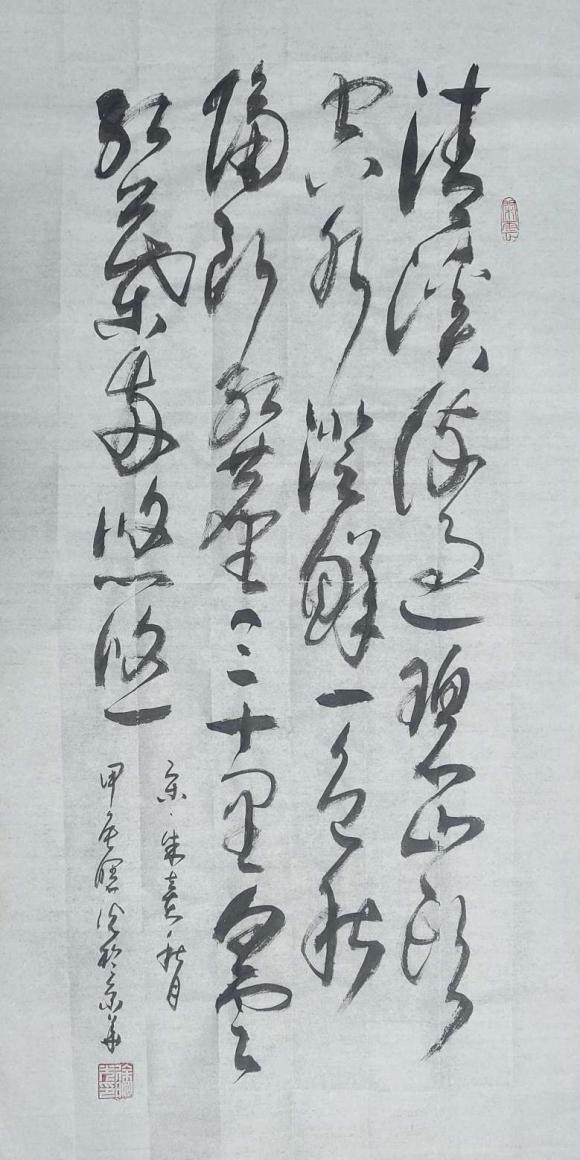 清溪流過碧山頭
空水澄鮮一色秋
隔斷紅塵三十里白雲
紅葉兩悠悠
宋·朱熹·秋月
甲辰曙光於京華